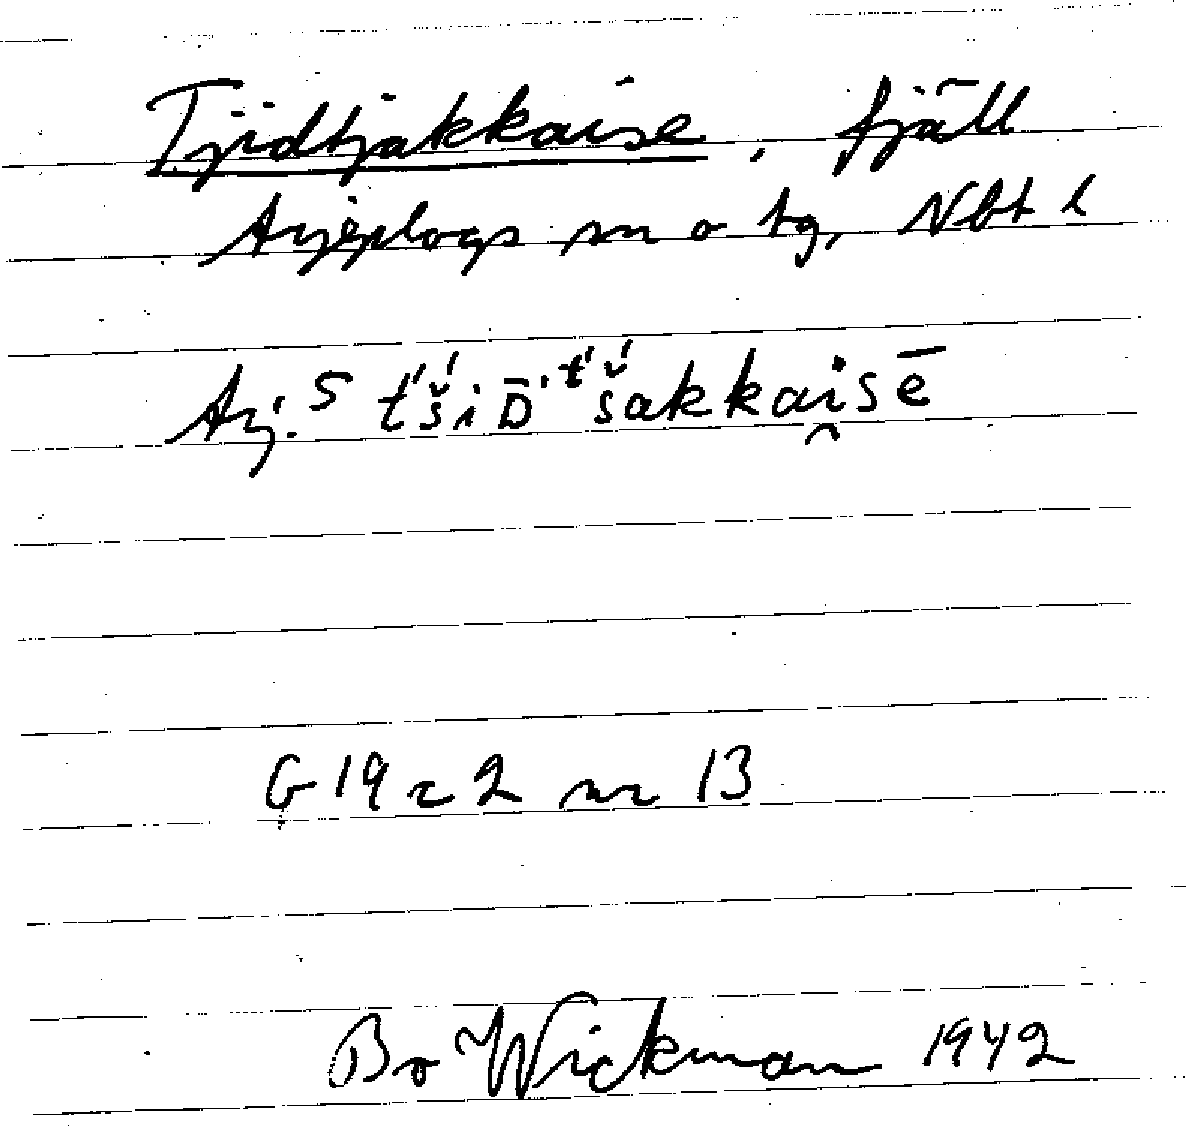 Tjidtjakkaise, fjäll
Arjeplogs sn o tg, Nbt l
Arj. S t́š́iD̄'t́š́akkai̯sē
G 19 c 2 nr 13
Bo Wickman 1942